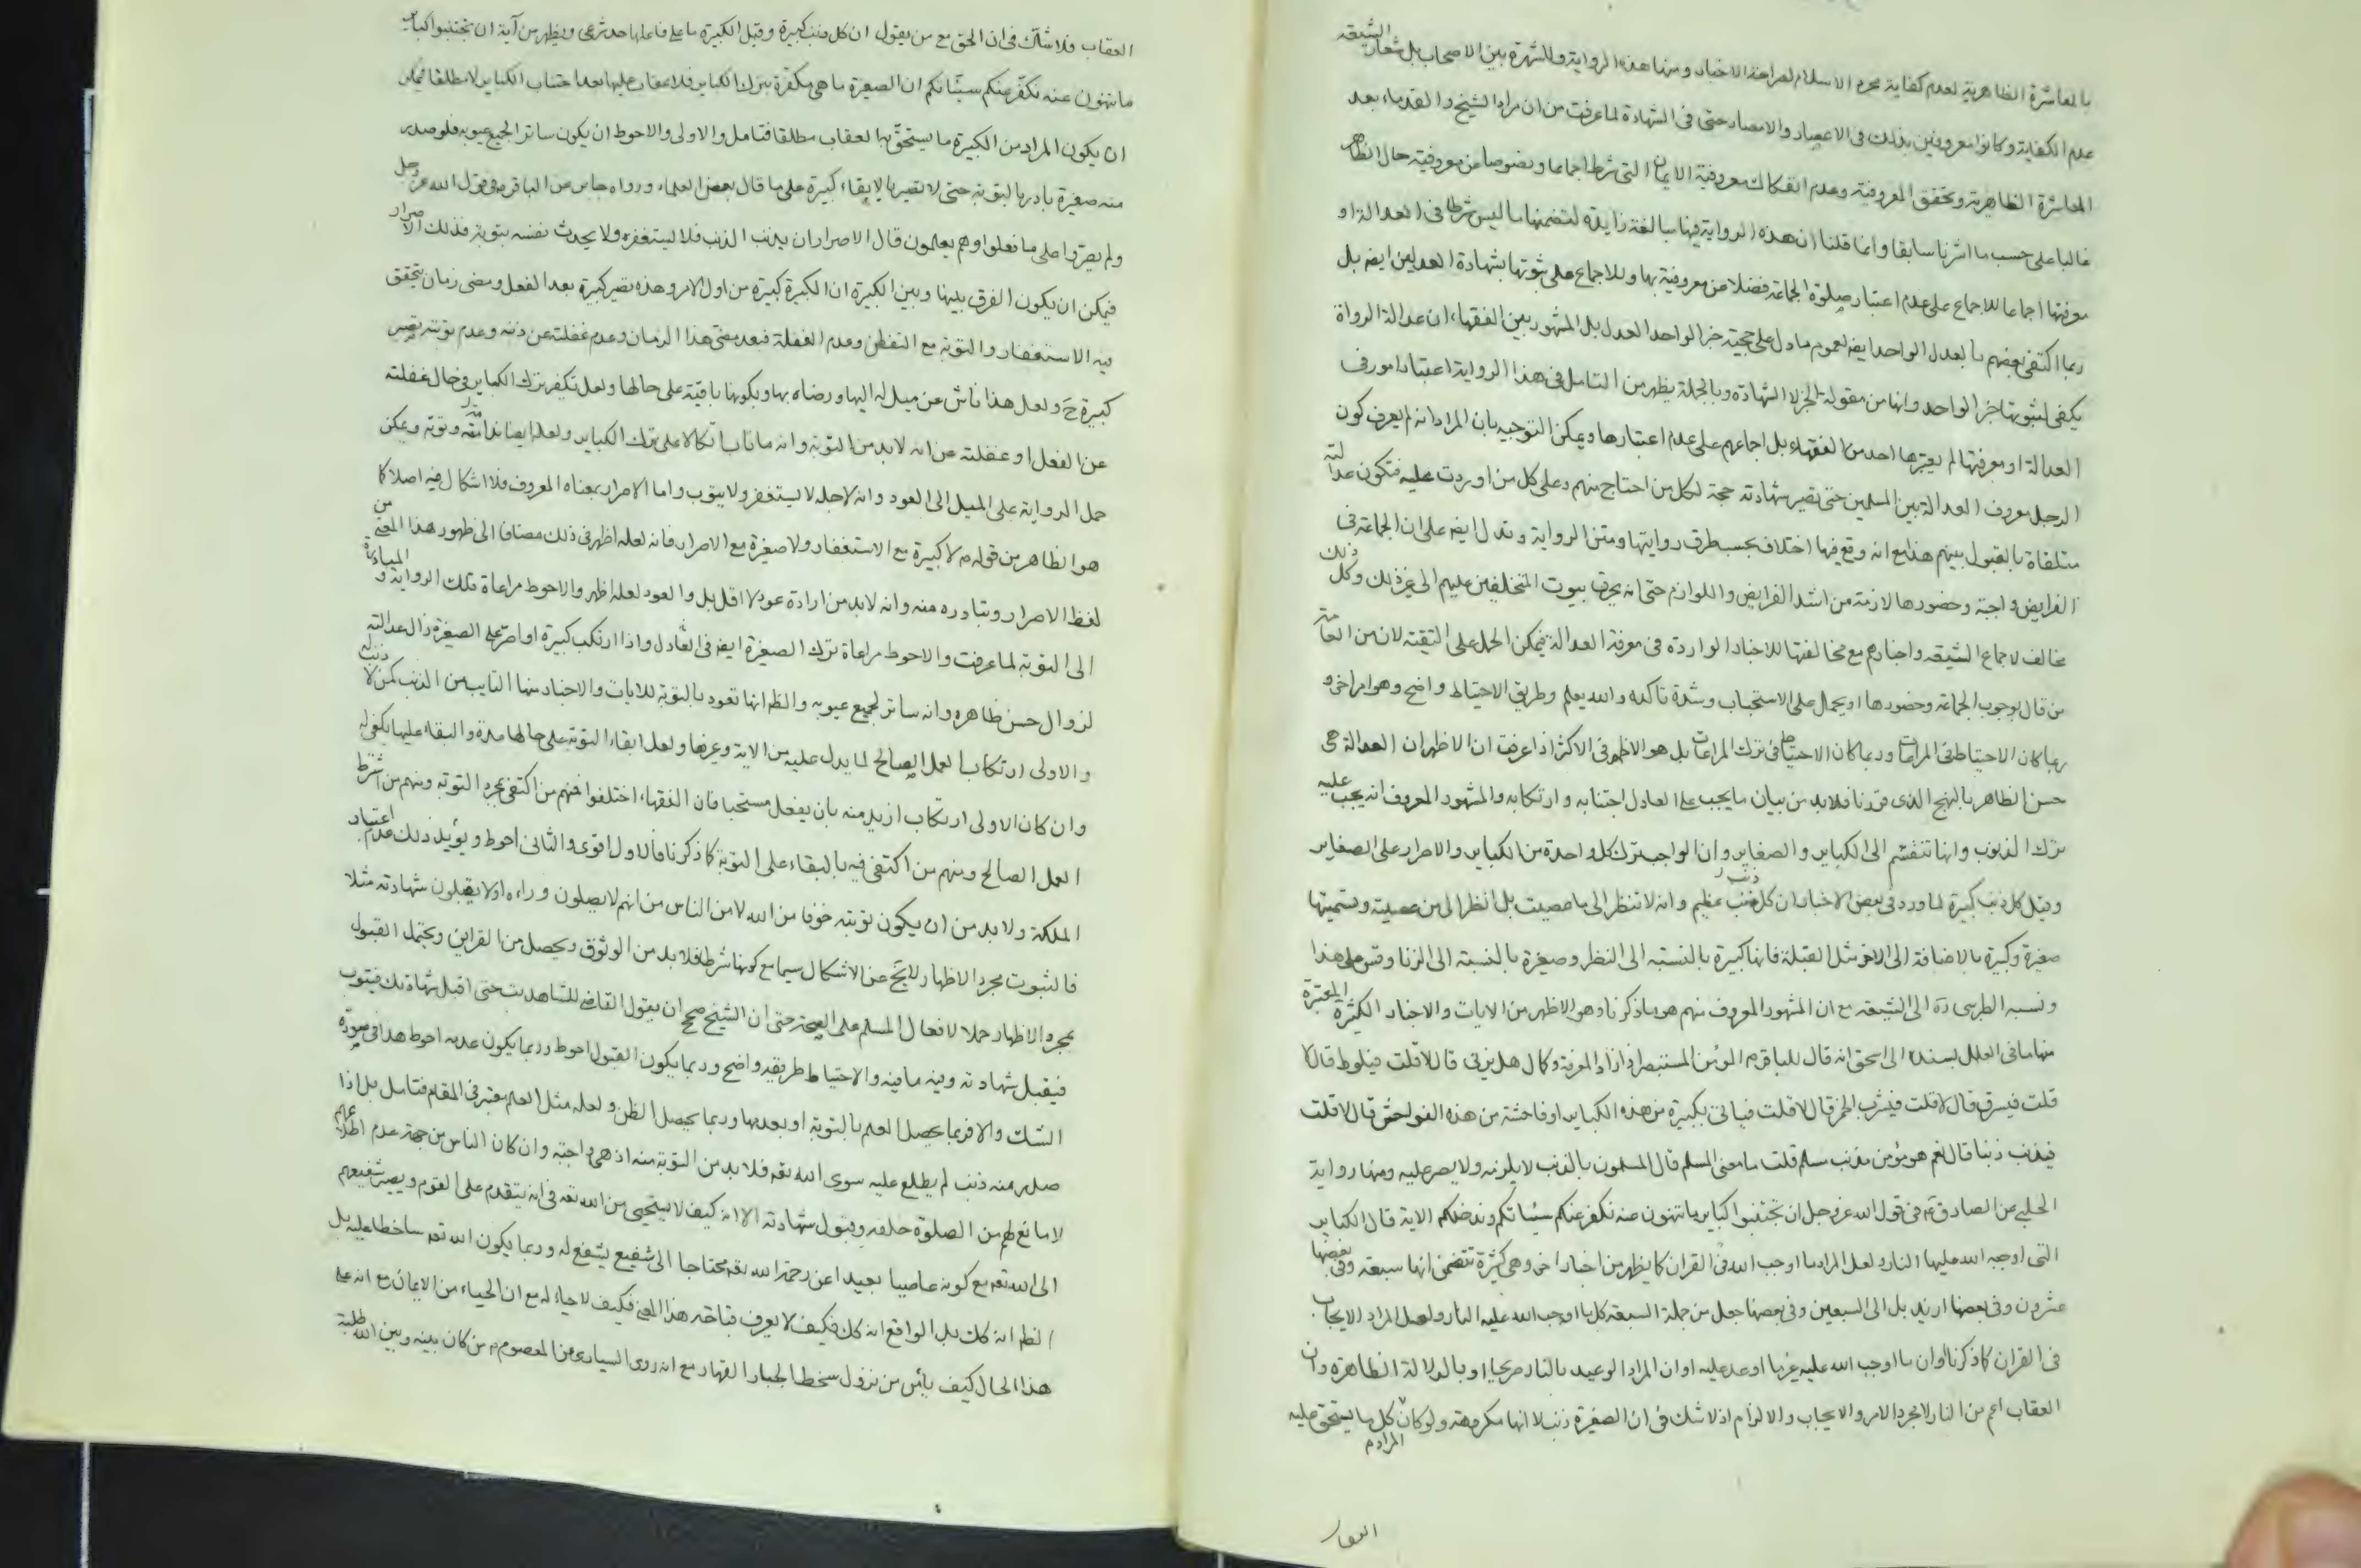 بالمعاشرة الظاهرية لعدم كفاية مجرد الاسلام لصراحة الاخبار ومنها هذه الرواية وللشهرة بين الاصحاب بل شعار الشيعة
عدم الكفاية وكانوا معروفين بذلك فى الاعصار والامصار حتى فى الشهادة لما عرفت من ان مراد الشيخ والقدماء بعد
المعاشرة الظاهرية وتحقق المعروفية وعدم انفكاك معروفية الايمان التى شرط اجماعا ونصوصا عن معروفية حال الظاهر
غالبا على حسب ما اشرنا سابقا وانما قلنا ان هذه الرواية فيها مبالغة زايدة لتضمنها ما ليس شرطا فى العدالة او
معرفتها اجماعا للاجماع على عدم اعتبار صلوة الجماعة فضلا عن معروفية بها وللاجماع على ثبوتها بشهادة العدلين ايضا بل
ربما اكتفى بعضهم بالعدل الواحد ايضا لعموم ما دل على حجية خبر الواحد العدل بل المشهور بين الفقهاء ان عدالة الرواة
يكفى لثبوتها خبر الواحد وانها من مقولة الخبر لا الشهادة وبالجملة يظهر من التامل فى هذا الرواية اعتبار امور فى
العدالة او معرفتها لم يعتبرها احد من الفقهاء بل اجماعهم على عدم اعتبارها ويمكن التوجيه بان المراد انه لم يعرف كون
الرجل معروف العدالة بين المسلمين حتى تصير شهادته حجة لكل من احتاج منهم وعلى كل من اوردت عليه فتكون عدالته
متلقاة بالقبول بينهم هذا مع انه وقع فيها اختلاف بحسب طرق روايتها ومتن الرواية وتدل ايضا على ان الجماعة فى
الفرايض واجبة وحضورها لازمة من اشد الفرايض واللوازم حتى انه يحرق بيوت المتخلفين عليهم الى غير ذلك وكل ذلك
مخالف لاجماع الشيعة واخبارهم مع مخالفتها للاخبار الواردة فى معرفة العدالة فيمكن الحمل على التقية لان من العامة
من قال بوجوب الجماعة وحضورها او يحمل على الاستحباب وشدة تاكده والله يعلم وطريق الاحتياط واضح وهو امر اخر و
ربما كان الاحتياط فى المراعات وربما كان الاحتياط فى ترك المراعات بل هو الاظهر فى الاكثر اذا عرفت ان الاظهر ان العدالة هى
حسن الظاهر بالنهج الذى قررنا فلا بد من بيان ما يجب على العادل اجتنابه وارتكابه والمشهور المعروف انه يجب عليه
ترك الذنوب وانها تنقسم الى الكباير والصغاير وان الواجب ترك كل واحدة من الكباير والاصرار على الصغاير
وقيل كل ذنب كبيرة لما ورد فى بعض الاخبار ان كل ذنب عظيم وانه لا تنظر الى ما عصيت بل انظر الى من عصيته وتسميتها
صغيرة وكبيرة بالاضافة الى الاخر مثل القبلة فانها كبيرة بالنسبة الى النظر وصغيرة بالنسبة الى الزنا وقس على هذا
ونسبه الطبرسى ره الى الشيعة مع ان المشهور المعروف منهم هو ما ذكرنا وهو الاظهر من الايات والاخبار الكثيرة المعتبرة
منها ما فى العلل بسنده الى اسحق انه قال للباقر م المؤمن المستبصر اذا زاد المعرفة وكمال هل يزنى قال لا قلت فيلوط قال لا
قلت فيسرق قال لا قلت فيشرب الخمر قال لا قلت فياتى بكبيرة من هذه الكباير او فاحشة من هذه الفواحش قال لا قلت
فيذنب ذنبا قال نعم هو مؤمن مذنب مسلم قلت ما معنى المسلم قال المسلمون بالذنب لا يلزمه ولا يصر عليه ومنها رواية
الحلبى عن الصادق م فى قول الله عز وجل ان تجتنبوا كباير ما تنهون عنه نكفر عنكم سيئاتكم وندخلكم الاية قال الكباير
التى اوجب الله عليها النار ولعل المراد ما اوجب الله فى القران كما يظهر من اخبار اخر وهى كثيرة تتضمن انها سبعة وفى بعضها
عشرون وفى بعضها ازيد بل الى السبعين وفى بعضها جعل من جملة السبعة كل ما اوجب الله عليه النار ولعل المراد الايجاب
فى القران كما ذكرنا او ان ما اوجب الله عليه غيرها اوعد عليه او ان المراد الوعيد بالنار صريحا او بالدلالة الظاهرة وان
العقاب اعم من النار لا مجرد الامر والايجاب والالزام اذ لا شك فى ان الصغيرة ذنب لا انها مكروهة ولو كان المراد م كل ما يستحق عليه
العقاب
العقاب فلا شك فى ان الحق مع من يقول ان كل ذنب كبيرة وقيل الكبيرة ما على فاعلها حد شرعى ويظهر من آية ان تجتنبوا كباير
ما تنهون عنه نكفر عنكم سيئاتكم ان الصغيرة ما هى مكفرة بترك الكباير فلا عقاب عليها بعد اجتناب الكباير لا مطلقا فيمكن
ان يكون المراد من الكبيرة ما يستحق بها العقاب مطلقا فتامل والاولى والاحوط ان يكون ساتر الجميع عيوبه فلو صدر
منه صغيرة بادر بالتوبة حتى لا تصير بالابقاء كبيرة على ما قال بعض العلماء ورواه جابر عن الباقر م فى قول الله عز وجل
ولم يصروا على ما فعلوا وهم يعلمون قال الاصرار ان يذنب الذنب فلا يستغفره ولا يحدث نفسه بتوبة فذلك الاصرار
فيمكن ان يكون الفرق بينها وبين الكبيرة ان الكبيرة كبيرة من اول الامر وهذه تصير كبيرة بعد الفعل ومضى زمان يتحقق
فيه الاستغفار والتوبة مع التفطن وعدم الغفلة فبعد مضى هذا الزمان وعدم غفلته عن ذنبه وعدم توبته تصير
كبيرة ح ولعل هذا ناش عن ميل له اليها ورضاه بها ويكونها باقية على حالها ولعل تكفير ترك الكباير فى حال غفلته
عن الفعل او غفلته عن انه لا بد من التوبة وانه ما تاب اتكالا على ترك الكباير ولعله ايضا ندامة وتوبة ويمكن
حمل الرواية على الميل الى العود وانه لاجله لا يستغفر ولا يتوب واما الاصرار بمعناه المعروف فلا اشكال فيه اصلا كما
هو الظاهر من قوله م لا كبيرة مع الاستغفار ولا صغيرة مع الاصرار فانه لعله اظهر فى ذلك مضافا الى ظهور هذا المعنى من
لفظ الاصرار وتبادره منه وانه لا بد من ارادة عود لا اقل بل والعود لعله اظهر والاحوط مراعاة تلك الرواية و المبادرة
الى التوبة لما عرفت والاحوط مراعاة ترك الصغيرة ايضا فى العادل واذا ارتكب كبيرة او اصر على الصغيرة زال عدالته
لزوال حسن ظاهره وانه ساتر لجميع عيوبه والظ انها تعود بالتوبة للايات والاخبار منها التايب من الذنب كمن لا ذنب له
والاولى ارتكاب العمل الصالح لما يدل عليه من الاية وغيرها ولعل ابقاء التوبة على حالها مدة والبقاء عليها يكفى له
وان كان الاولى ارتكاب ازيد منه بان يفعل مستحبا فان الفقهاء اختلفوا فمنهم من اكتفى بمجرد التوبة ومنهم من اشترط
العمل الصالح ومنهم من اكتفى فيه بالبقاء على التوبة كما ذكرنا فالاول اقوى والثانى احوط ويؤيد ذلك عدم اعتبار
الملكة ولا بد من ان يكون توبته خوفا من الله لا من الناس من انهم لا يصلون وراءه او لا يقبلون شهادته مثلا
فالثبوت بمجرد الاظهار لا يخ عن الاشكال سيما مع كونها شرطا فلا بد من الوثوق ويحصل من القراين ويحتمل القبول
بمجرد الاظهار حملا لافعال المسلم على الصحة حتى ان الشيخ صحح ان يقول القاضى للشاهد تب حتى اقبل شهادتك فيتوب
فيقبل شهادته وفيه ما فيه والاحتياط طريقه واضح وربما يكون القبول احوط وربما يكون عدمه احوط هذا فى صورة
الشك والا فربما يحصل العلم بالتوبة او بعدمها وربما يحصل الظن ولعله مثل العلم معتبر فى المقام فتامل بل اذا
صدر منه ذنب لم يطلع عليه سوى الله تعه فلا بد من التوبة منه اذ هى واجبة وان كان الناس من جهة عدم اطلاعهم
لا مانع لهم من الصلوة خلفه وقبول شهادته الا انه كيف لا يستحيى من الله تعه فى انه يتقدم على القوم ويصير شفيعهم
الى الله تعه مع كونه عاصيا بعيدا عن رحمة الله تعه محتاجا الى شفيع يشفع له وربما يكون الله تعه ساخطا عليه بل
الظ انه كك بل الواقع انه كك فكيف لا يعرف قباحة هذا المعنى فكيف لا حياء له مع ان الحياء من الايمان مع انه على
هذا الحال كيف يأمن من نزول سخط الجبار القهار مع انه روى السيارى عن المعصوم م من كان بينه وبين الله طلبة